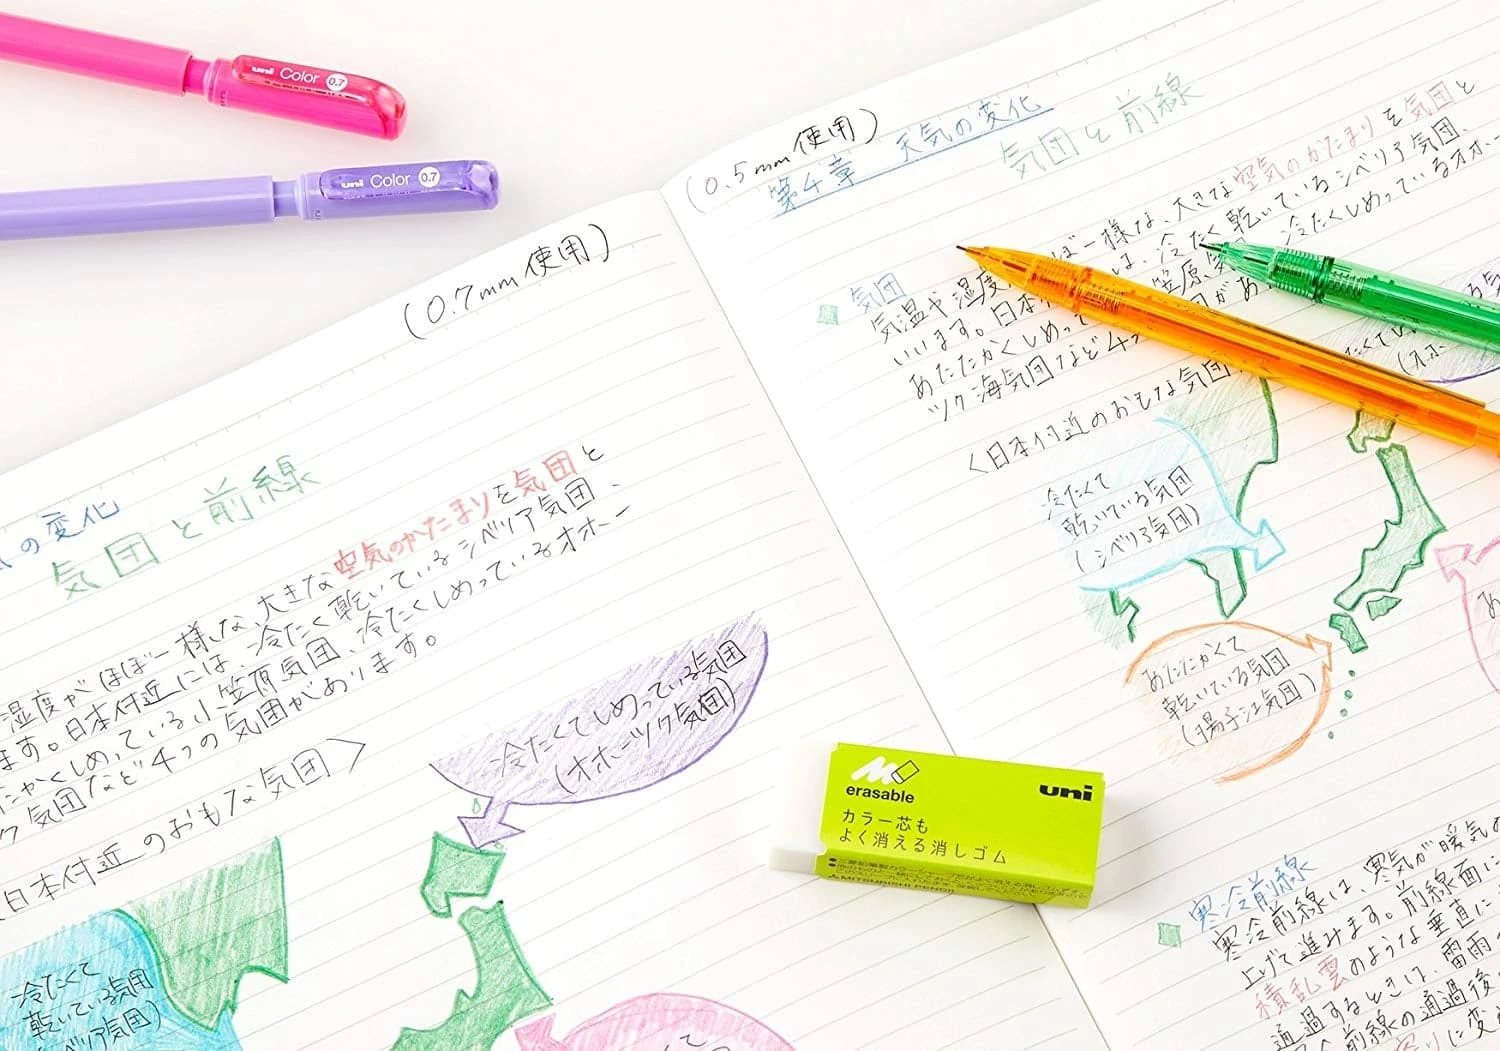 uni Color 0.7
uni Color 0.7
(0.7mm 使用)
の変化
気団と前線
湿度がほぼ一様な、大きな空気のかたまりを気団と
ます。日本付近には、冷たく乾いているシベリア気団、
たかくしめっている小笠原気団、冷たくしめっているオホー
ツク気団など4つの気団があります。
日本付近のおもな気団〉
冷たくてしめっている気団
(オホーツク気団)
冷たくて
乾いている気団
ベリア気団)
(0.5mm 使用)
第4章 天気の変化
気団と前線
気団
気温や湿度
ぼ一様な、大きな空気のかたまりを気団と
います。日本
は、冷たく乾いているシベリア気団、
あたたかくしめって
笠原気
冷たくしめっているオホー
ツク海気団など4つ
団があ
〈日本付近のおもな気団
冷たくて
乾いている気団
(シベリア気団)
あたたかくて
乾いている気団
(揚子江気団)
あ
erasable
uni
カラー芯も
よく消える消しゴム
MITSUBISHI PENCIL
寒冷前線
寒冷前線は、寒気が暖気の
上げて進みます。前線面に
積乱雲のような垂直に
通過するときは、雷雨
前線の通過後
に変